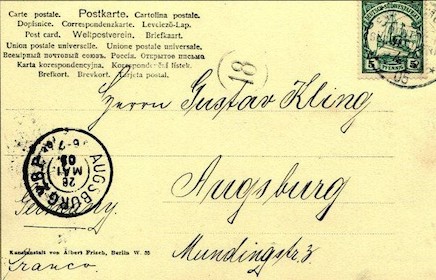 Carte postale. Postkarte. Cartolina postale.
Dopisnice. Correspondenzkarte. Levelező-Lap.
Post card. Weltpostverein. Briefkaart.
Union postale universelle. Unione postale universale.
Всемірный почтовый союзъ. Россія. Открытое письмо.
Karta korespondencyjna. Korespondenční lístek.
Brefkort. Brevkort. Tarjeta postal.
18
5 PFENNIG 5
05
Herrn Gustav Kling
Augsburg
AUGSBURG 2.B.P.
26
MAI
05
6-7
Germany.
Mundingstr. 3.
Kunstanstalt von Albert Frisch, Berlin W. 35
Franco.